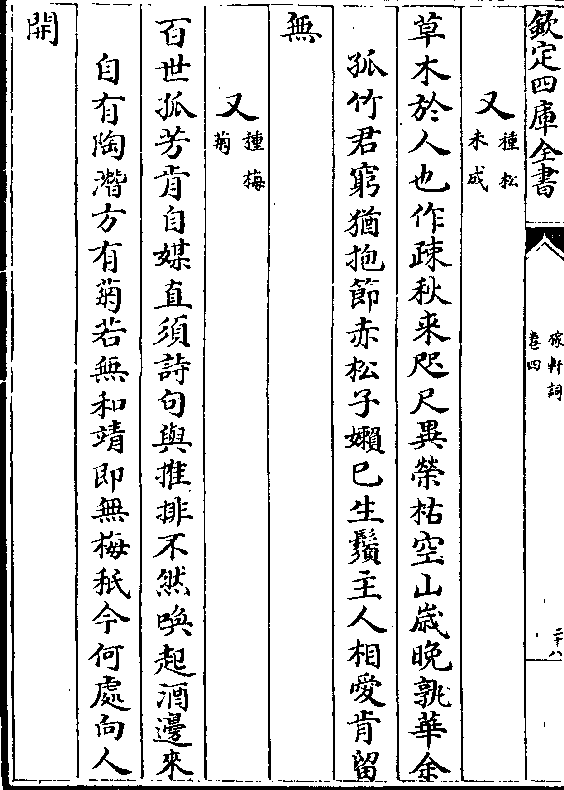 欽定四庫全書
稼軒詞
卷四
二十八
又
種松
未成
草木於人也作疎秋来咫尺異榮枯空山歳晚孰華余
孤竹君窮猶抱節赤松子嬾已生鬚主人相愛肯留
無
又
種梅
菊
百世孤芳肯自媒直須詩句與推排不然喚起酒邊來
自有陶潛方有菊若無和靖即無梅秪今何處向人
開